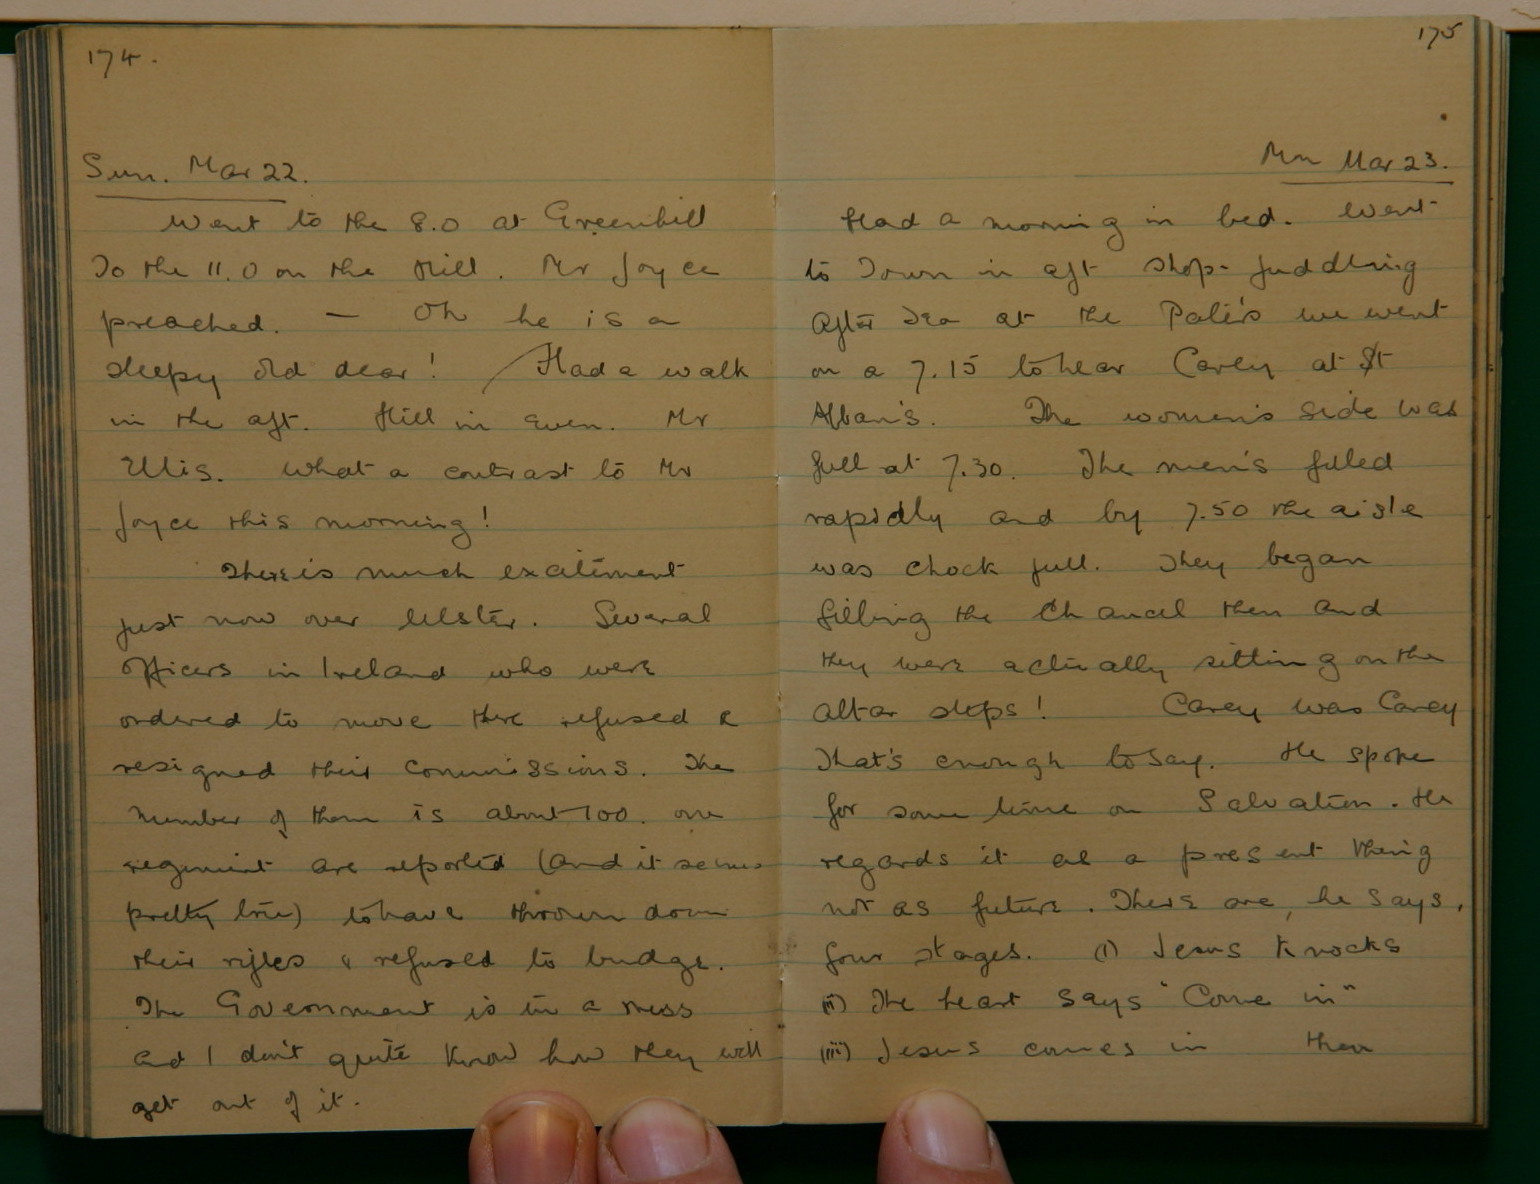 174.
Sun. Mar 22.
Went to the 8.0 at Greenhill
To the 11.0 on the Hill. Mr Joyce
preached. — Oh he is a
sleepy old dear! / Had a walk
in the aft. Hill in even. Mr
Ellis. What a contrast to Mr
Joyce this morning!
There is much excitement
just now over Ulster. Several
officers in Ireland who were
ordered to move there refused &
resigned their commissions. The
number of them is about 100. one
regiment are reported (and it seems
pretty true) to have thrown down
their rifles & refused to budge.
The Government is in a mess
and I don't quite know how they will
get out of it.
175
Mon Mar 23.
Had a morning in bed. Went
to Town in aft shop-fuddling
After Tea at the Palis we went
on a 7.15 to hear Carey at St
Alban's. The women's side was
full at 7.30. The men's filled
rapidly and by 7.50 the aisle
was chock full. They began
filling the Chancel then and
they were actually sitting on the
altar steps! Carey was Carey
That's enough to say. He spoke
for some time on Salvation. He
regards it as a present thing
not as future. There are, he says,
four stages. (i) Jesus Knocks
(ii) The heart says "Come in"
(iii) Jesus comes in then